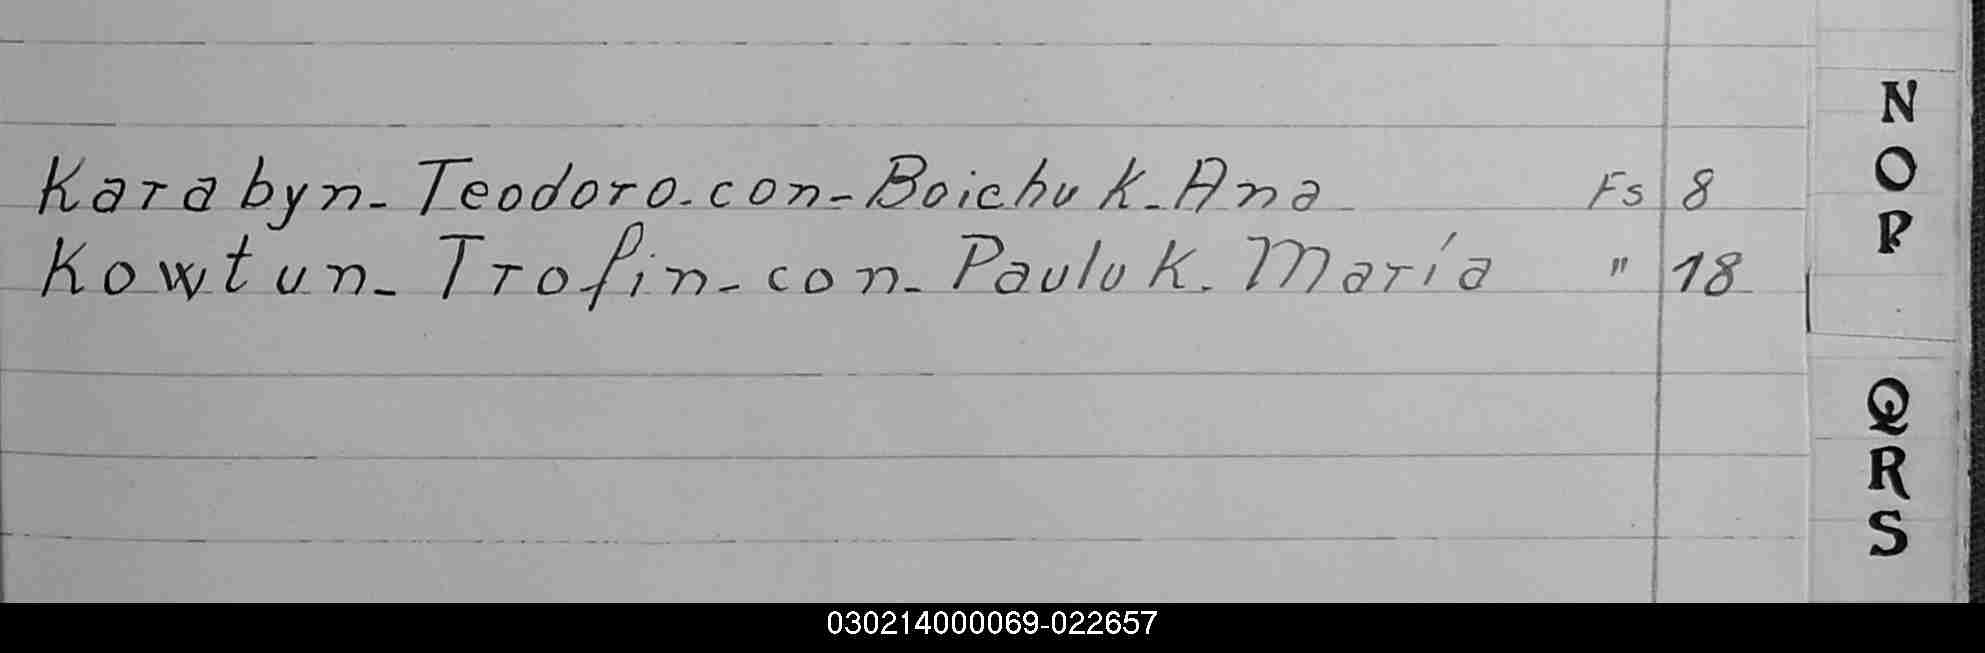 Karabyn_Teodoro.con-Boichuk_Ana Fs 8
Kowtun_Trofin_con_Pauluk.María " 18
N
O
P
Q
R
S
030214000069-022657